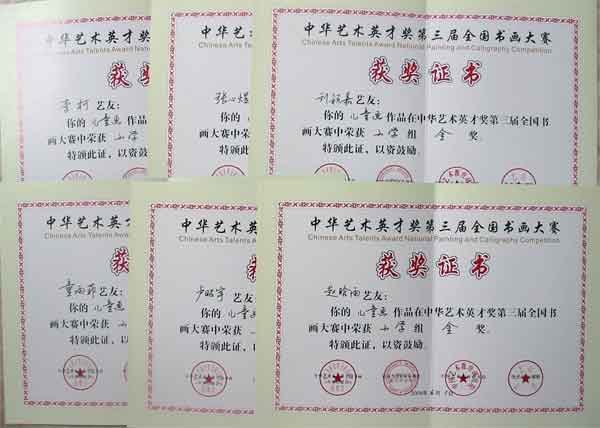 中华艺术英
Chinese Arts Talents Award National
获
李柯 艺友:
你的 儿童画 作
画大赛中荣获 小学
特颁此证,以资
中华艺术
Chinese Arts
艺友:
你的
画大赛中荣获
特颁此证,
中华艺术英才奖第三届全国书画大赛
Chinese Arts Talents Award National Painting and Calligraphy Competition
获奖证书
艺友:
你的 儿童画 作品在中华艺术英才奖第三届全国书
画大赛中荣获 小学 组 金 奖。
特颁此证,以资鼓励。
中华艺术英
Chinese Arts Talents
获
童雨菲 艺友:
你的 儿童画
画大赛中荣获
特颁此证,以资
中华艺术英
Chinese Arts Talents
获
艺友:
你的 儿童画
画大赛中荣获
特颁此证,以
中华艺术英才奖第三届全国书画大赛
Chinese Arts Talents Award National Painting and Calligraphy Competition
获奖证书
赵晗雨 艺友:
你的 儿童画 作品在中华艺术英才奖第三届全国书
画大赛中荣获 小学 组 金 奖。
特颁此证,以资鼓励。